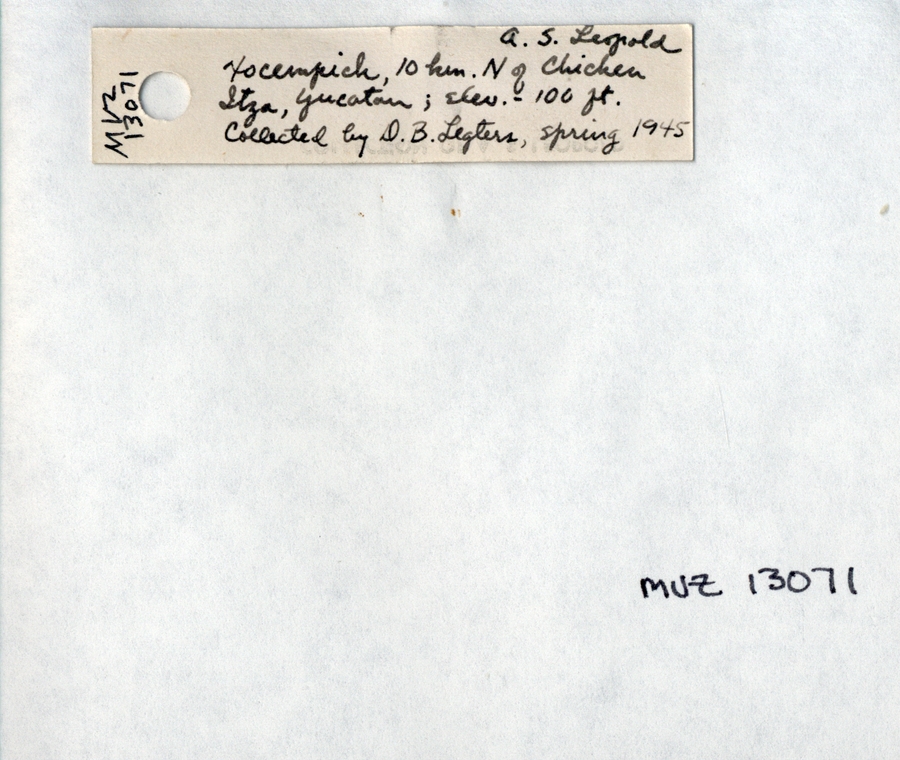 A. S. Leopold
Xocempich, 10 km. N of Chichen
Itza, Yucatan; elev. - 100 ft.
Collected by D. B. Legters, spring 1945
MVZ
13071
MVZ 13071